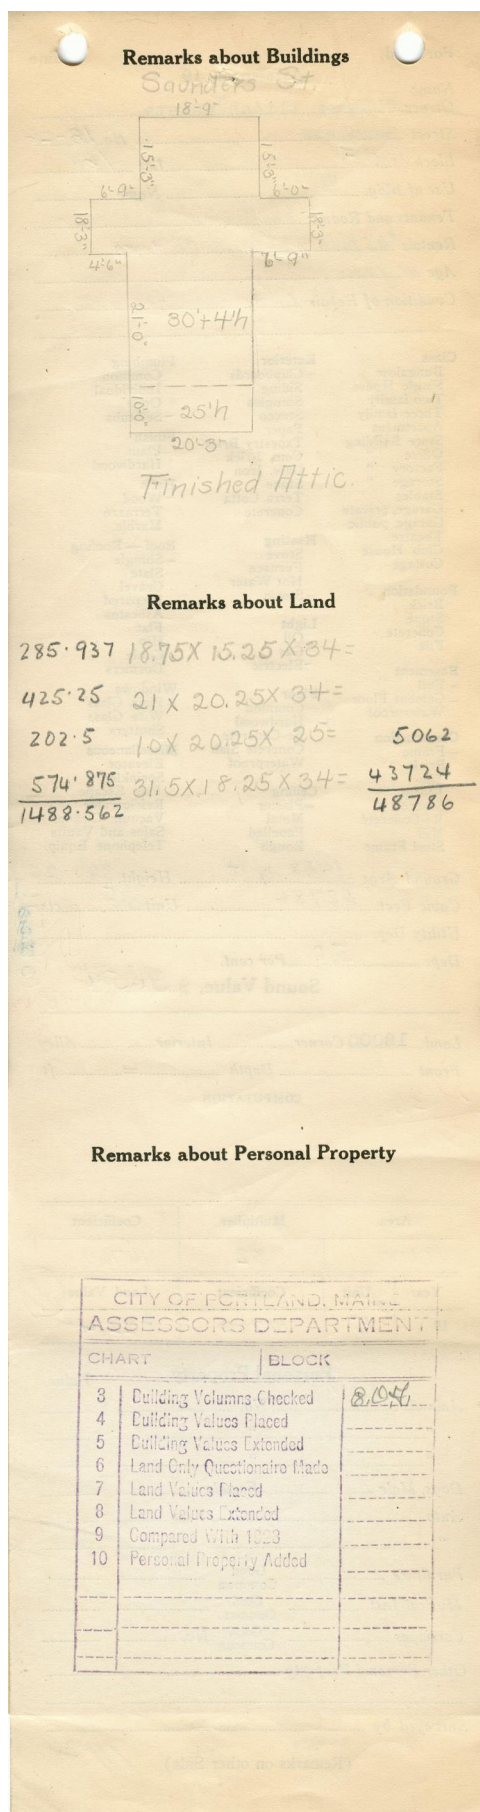 Remarks about Buildings
Saunders St.
18'-9"
15'-3" 15'-3"
6'-9" 6'-0"
18'-3" 18'-3"
4'-6" 6'-9"
21'-0" 30'+4'h
10'-0" 25'h
20'-3"
Finished Attic.
Remarks about Land
285.937 18.75 X 15.25 X 34=
425.25 21 X 20.25 X 34=
202.5 10 X 20.25 X 25= 5062
574.875 31.5 X 18.25 X 34= 43724
1488.562 48786
Remarks about Personal Property
CITY OF PORTLAND, MAINE
ASSESSORS DEPARTMENT
CHART BLOCK
3 Building Volumns Checked
4 Building Values Placed
5 Building Values Extended
6 Land Only Questionaire Made
7 Land Values Placed
8 Land Values Extended
9 Compared With 1923
10 Personal Property Added